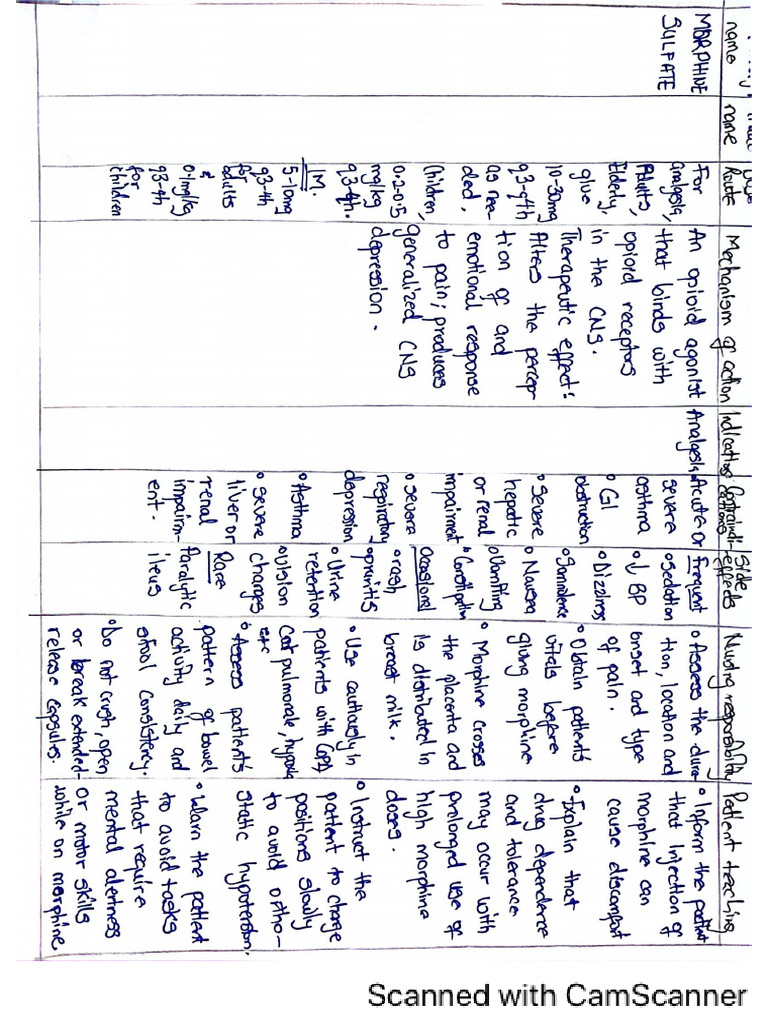 name
MORPHINE
SULFATE
name
Route
For
analgesia,
Adults,
Elderly,
give
10-30mg
q3-4th
as nee-
ded.
Children,
0.2-0.5
mg/kg
q3-4th.
I.M.
5-10mg
q3-4h
for
adults
&
0.1mg/kg
q3-4h
for
children
Mechanism of action
An opioid agonist
that binds with
opioid receptors
in the CNS.
Therapeutic effect:
Alters the percep
tion of and
emotional response
to pain; produces
generalized CNS
depression.
Indication
Analgesia
Contraindi-
cations
Acute or
severe
asthma
• GI
obstruction
• Severe
hepatic
or renal
impairment
• severe
respiratory
depression
• Asthma
• severe
liver or
renal
impairm-
ent.
Side
effects
Frequent
• sedation
• ↓ BP
• Dizziness
• Somnolence
• Nausea
• Vomiting
• Constipation
Occasional
• rash
• pruritis
• Urine
retention
• vision
changes
Rare
Paralytic
ileus
Nursing responsibility
• Assess the dura-
tion, location and
onset and type
of pain.
• Obtain patients'
vitals before
giving morphine
• Morphine crosses
the placenta and
is distributed in
breast milk.
• Use cautiously in
patients with COPD
Cor pulmonale, hypoxia
etc
• Assess patients
pattern of bowel
activity daily and
stool consistency.
• Do not crush, open
or break extended-
release capsules.
Patient teaching
• Inform the patient
that injection of
morphine can
cause discomfort
• Explain that
drug dependence
and tolerance
may occur with
prolonged use of
high morphine
doses.
• Instruct the
patient to change
positions slowly
to avoid ortho-
static hypotension.
• Warn the patient
to avoid tasks
that require
mental alertness
or motor skills
while on morphine.
Scanned with CamScanner